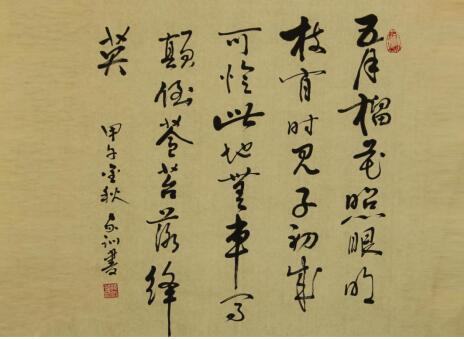 五月榴花照眼明
枝间时见子初成
可怜此地无车马
颠倒苍苔落绛
英
甲午金秋 书